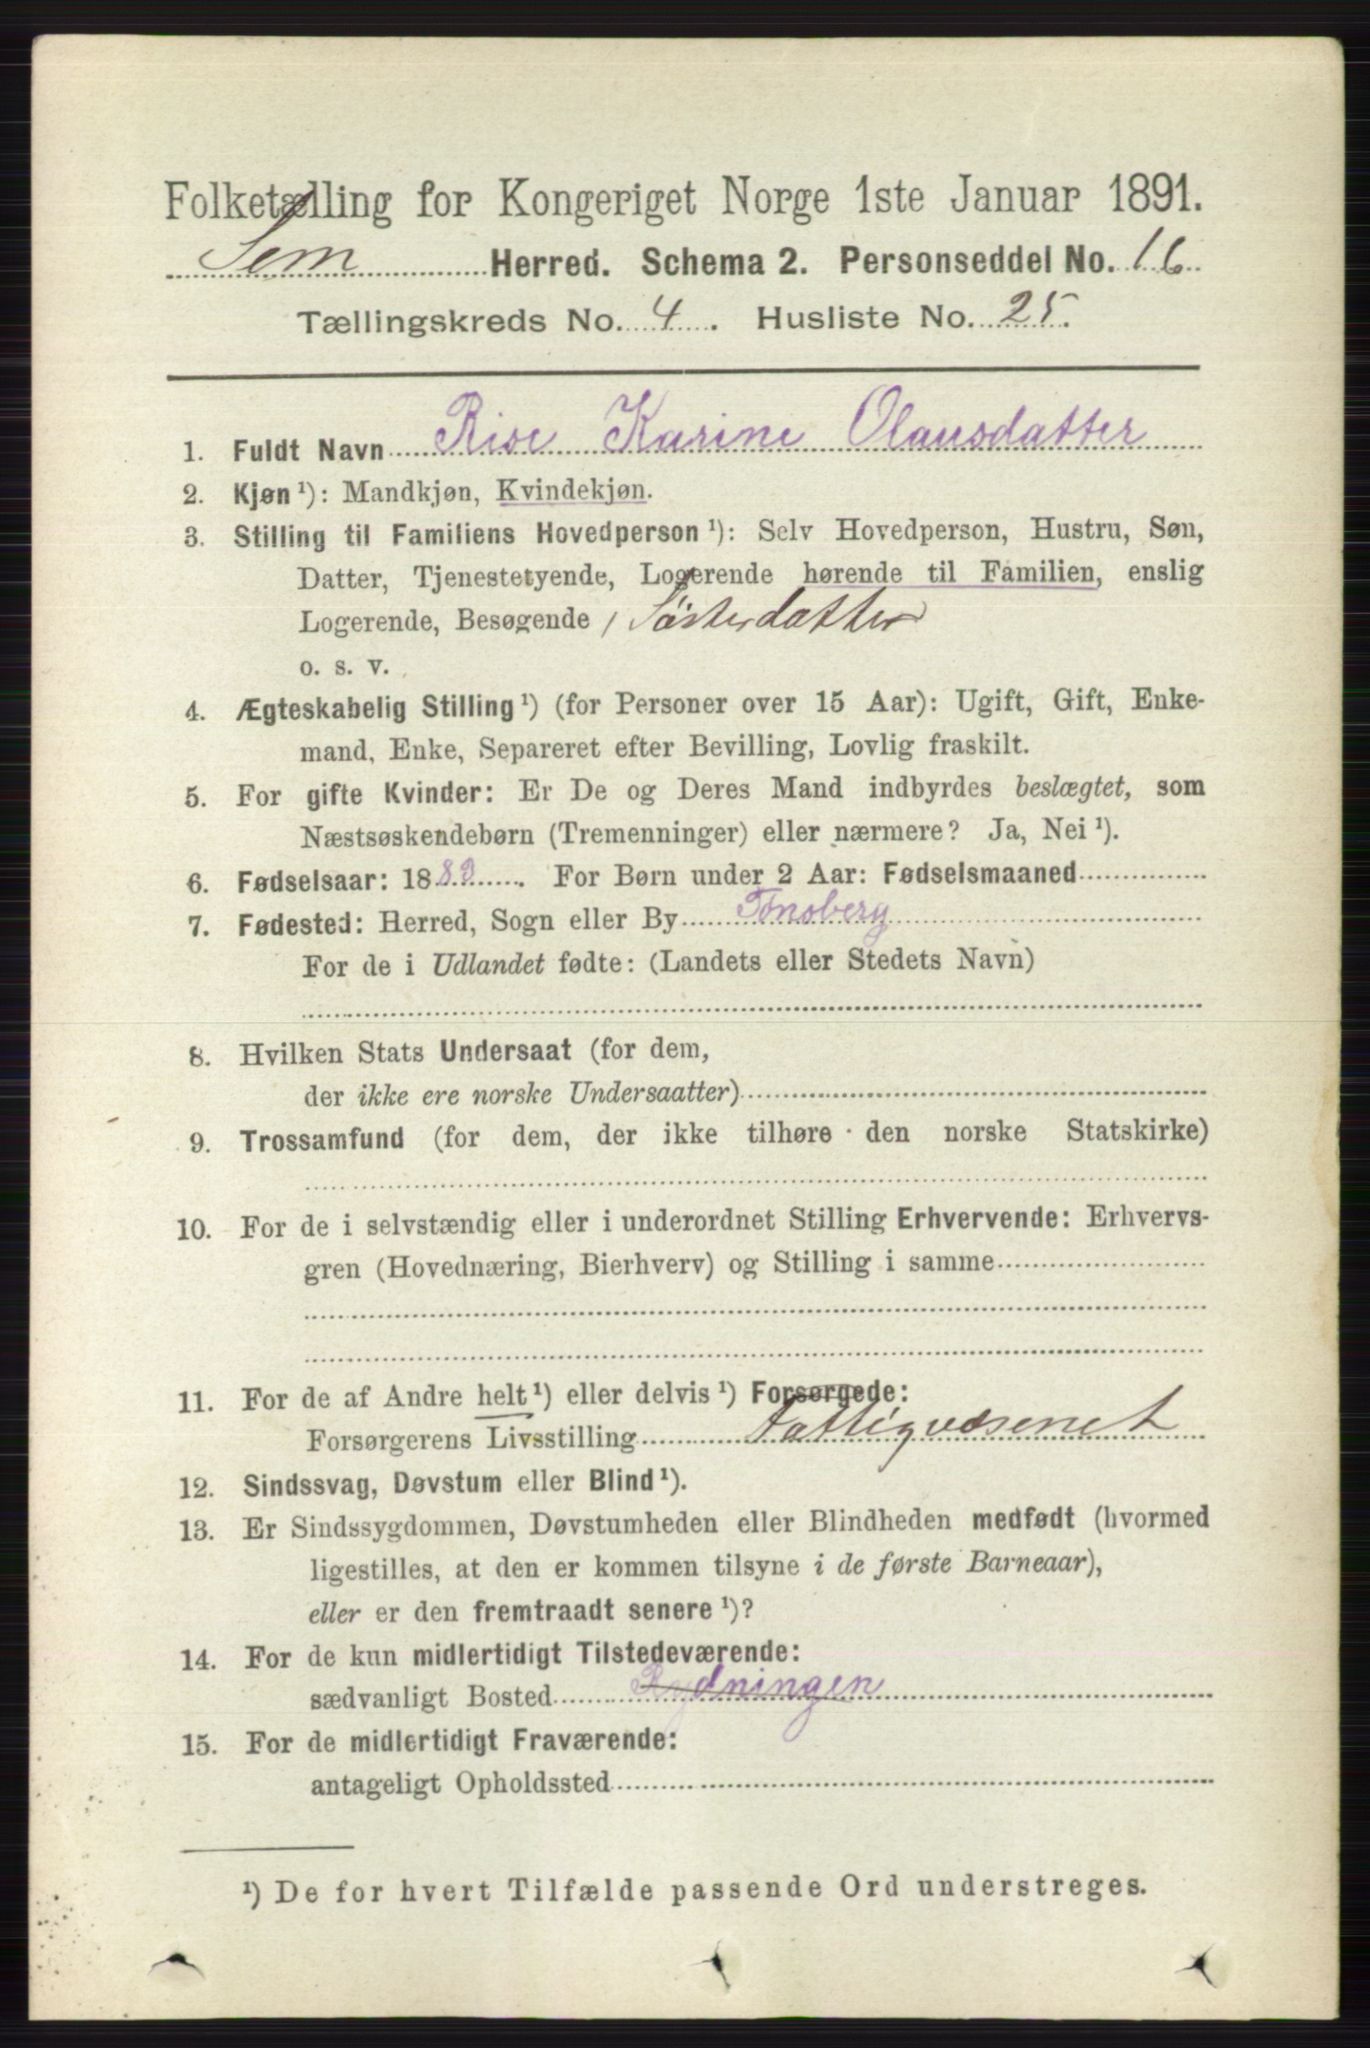 Folketælling for Kongeriget Norge 1ste Januar 1891.
Sem Herred. Schema 2. Personseddel No. 16
Tællingskreds No. 4. Husliste No. 25.
1. Fuldt Navn Rise Karine Olausdatter
2. Kjøn¹): Mandkjøn, Kvindekjøn.
3. Stilling til Familiens Hovedperson¹): Selv Hovedperson, Hustru, Søn,
Datter, Tjenestetyende, Logerende hørende til Familien, enslig
Logerende, Besøgende, Søsterdatter
o. s. v.
4. Ægteskabelig Stilling¹) (for Personer over 15 Aar): Ugift, Gift, Enke-
mand, Enke, Separeret efter Bevilling, Lovlig fraskilt.
5. For gifte Kvinder: Er De og Deres Mand indbyrdes beslægtet, som
Næstsøskendebørn (Tremenninger) eller nærmere? Ja, Nei¹).
6. Fødselsaar: 18 . For Børn under 2 Aar: Fødselsmaaned
7. Fødested: Herred, Sogn eller By Tønsberg
For de i Udlandet fødte: (Landets eller Stedets Navn)
8. Hvilken Stats Undersaat (for dem,
der ikke ere norske Undersaatter)
9. Trossamfund (for dem, der ikke tilhøre den norske Statskirke)
10. For de i selvstændig eller i underordnet Stilling Erhvervende: Erhvervs-
gren (Hovednæring, Bierhverv) og Stilling i samme
11. For de af Andre helt¹) eller delvis¹) Forsørgede:
Forsørgerens Livsstilling Fattigvæsenet
12. Sindssvag, Døvstum eller Blind¹).
13. Er Sindssygdommen, Døvstumheden eller Blindheden medfødt (hvormed
ligestilles, at den er kommen tilsyne i de første Barneaar),
eller er den fremtraadt senere¹)?
14. For de kun midlertidigt Tilstedeværende:
sædvanligt Bosted Rydningen
15. For de midlertidigt Fraværende:
antageligt Opholdssted
¹) De for hvert Tilfælde passende Ord understreges.